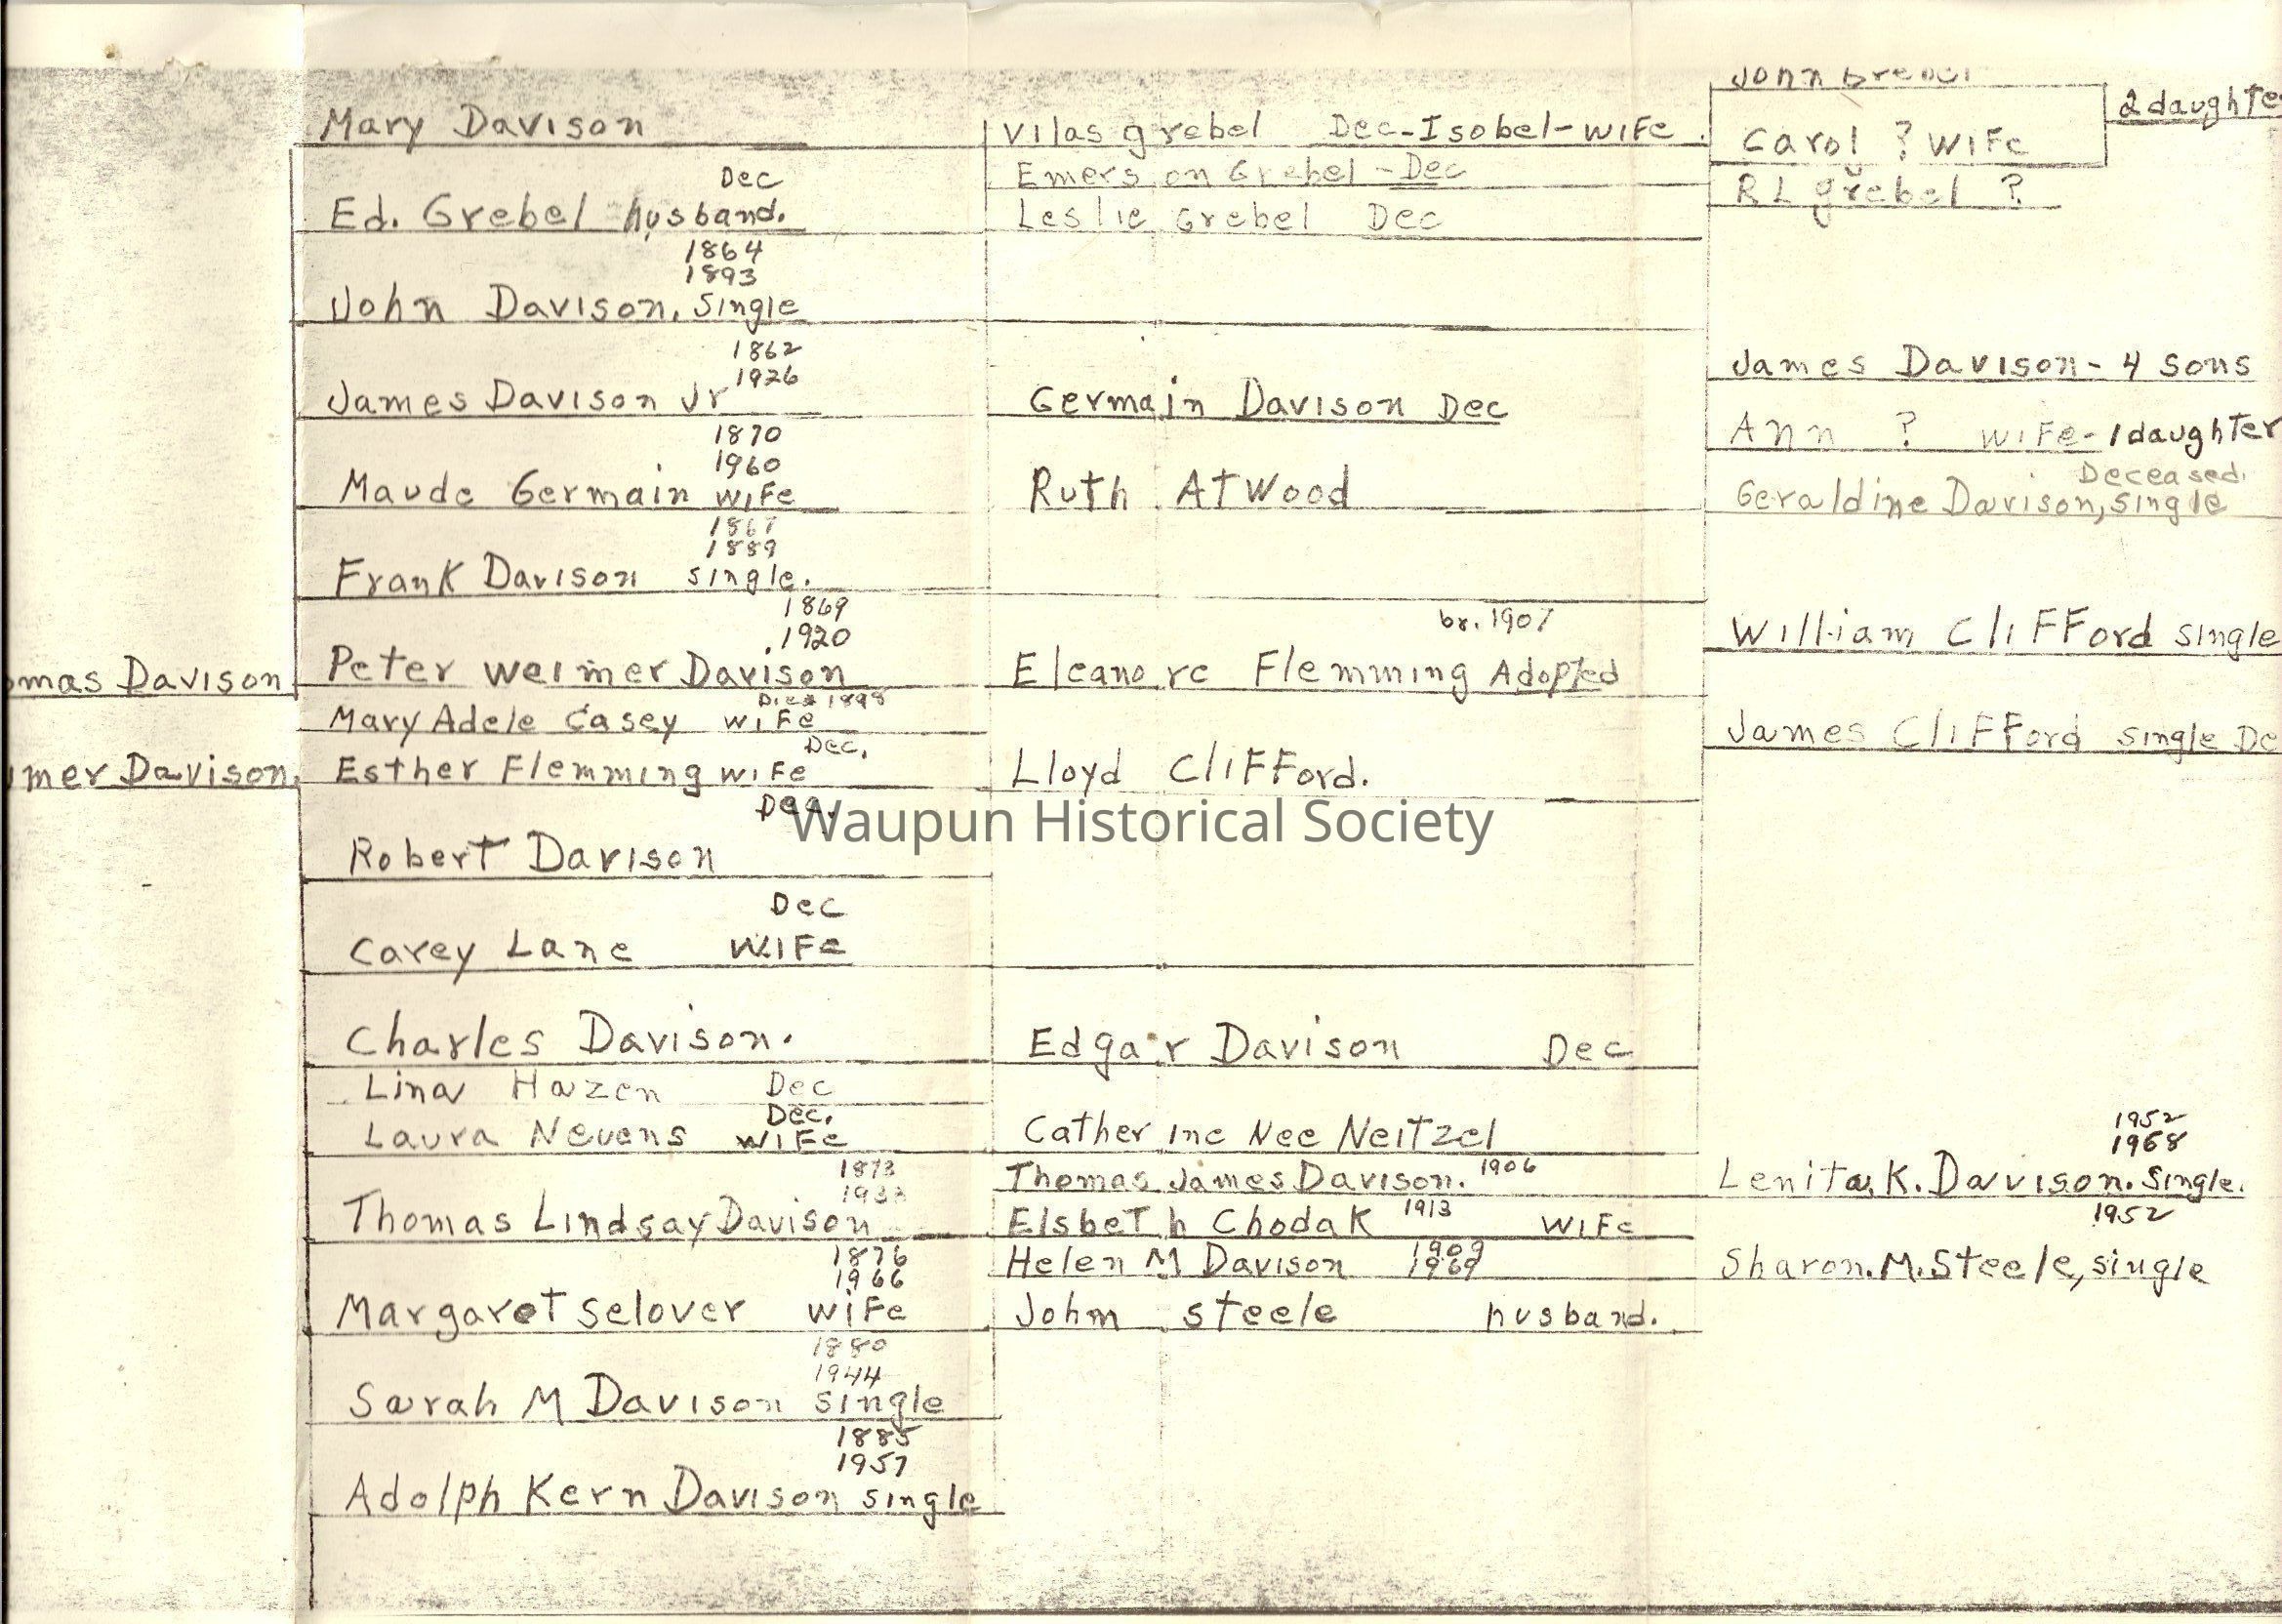 omas Davison
imer Davison.
Mary Davison
Dec
Ed. Grebel husband.
1864
1893
John Davison, Single
1862
1926
James Davison Jr
1870
1960
Maude Germain wife
1889
Frank Davison single.
1869
1920
Peter Weimer Davison
Died 1898
Mary Adele Casey wife
Dec.
Esther Flemming wife
Dec.
Robert Davison
Dec
Carey Lane wife
Charles Davison.
Lina Hazen Dec
Dec.
Laura Nevens wife
1873
Thomas Lindsay Davison
1876
1966
Margaret Selover wife
1880
1944
Sarah M Davison single
1885
1957
Adolph Kern Davison single
Vilas Grebel Dec-Isobel-wife
Emerson Grebel - Dec
Leslie Grebel Dec
Germain Davison Dec
Ruth Atwood
br. 1907
Eleanore Flemming Adopted
Lloyd Clifford.
Edgar Davison Dec
Catherine Nee Neitzel
Thomas James Davison. 1906
Elsbeth Chodak 1913 wife
1909
Helen M Davison 1969
John Steele husband.
John Grebel
2 daughte
Carol ? wife
RL Grebel ?
James Davison - 4 sons
Ann ? wife - 1 daughter
Deceased.
Geraldine Davison, single
William Clifford single
James Clifford single De
1952
1968
Lenita K. Davison. Single.
1952
Sharon. M. Steele, single
Waupun Historical Society